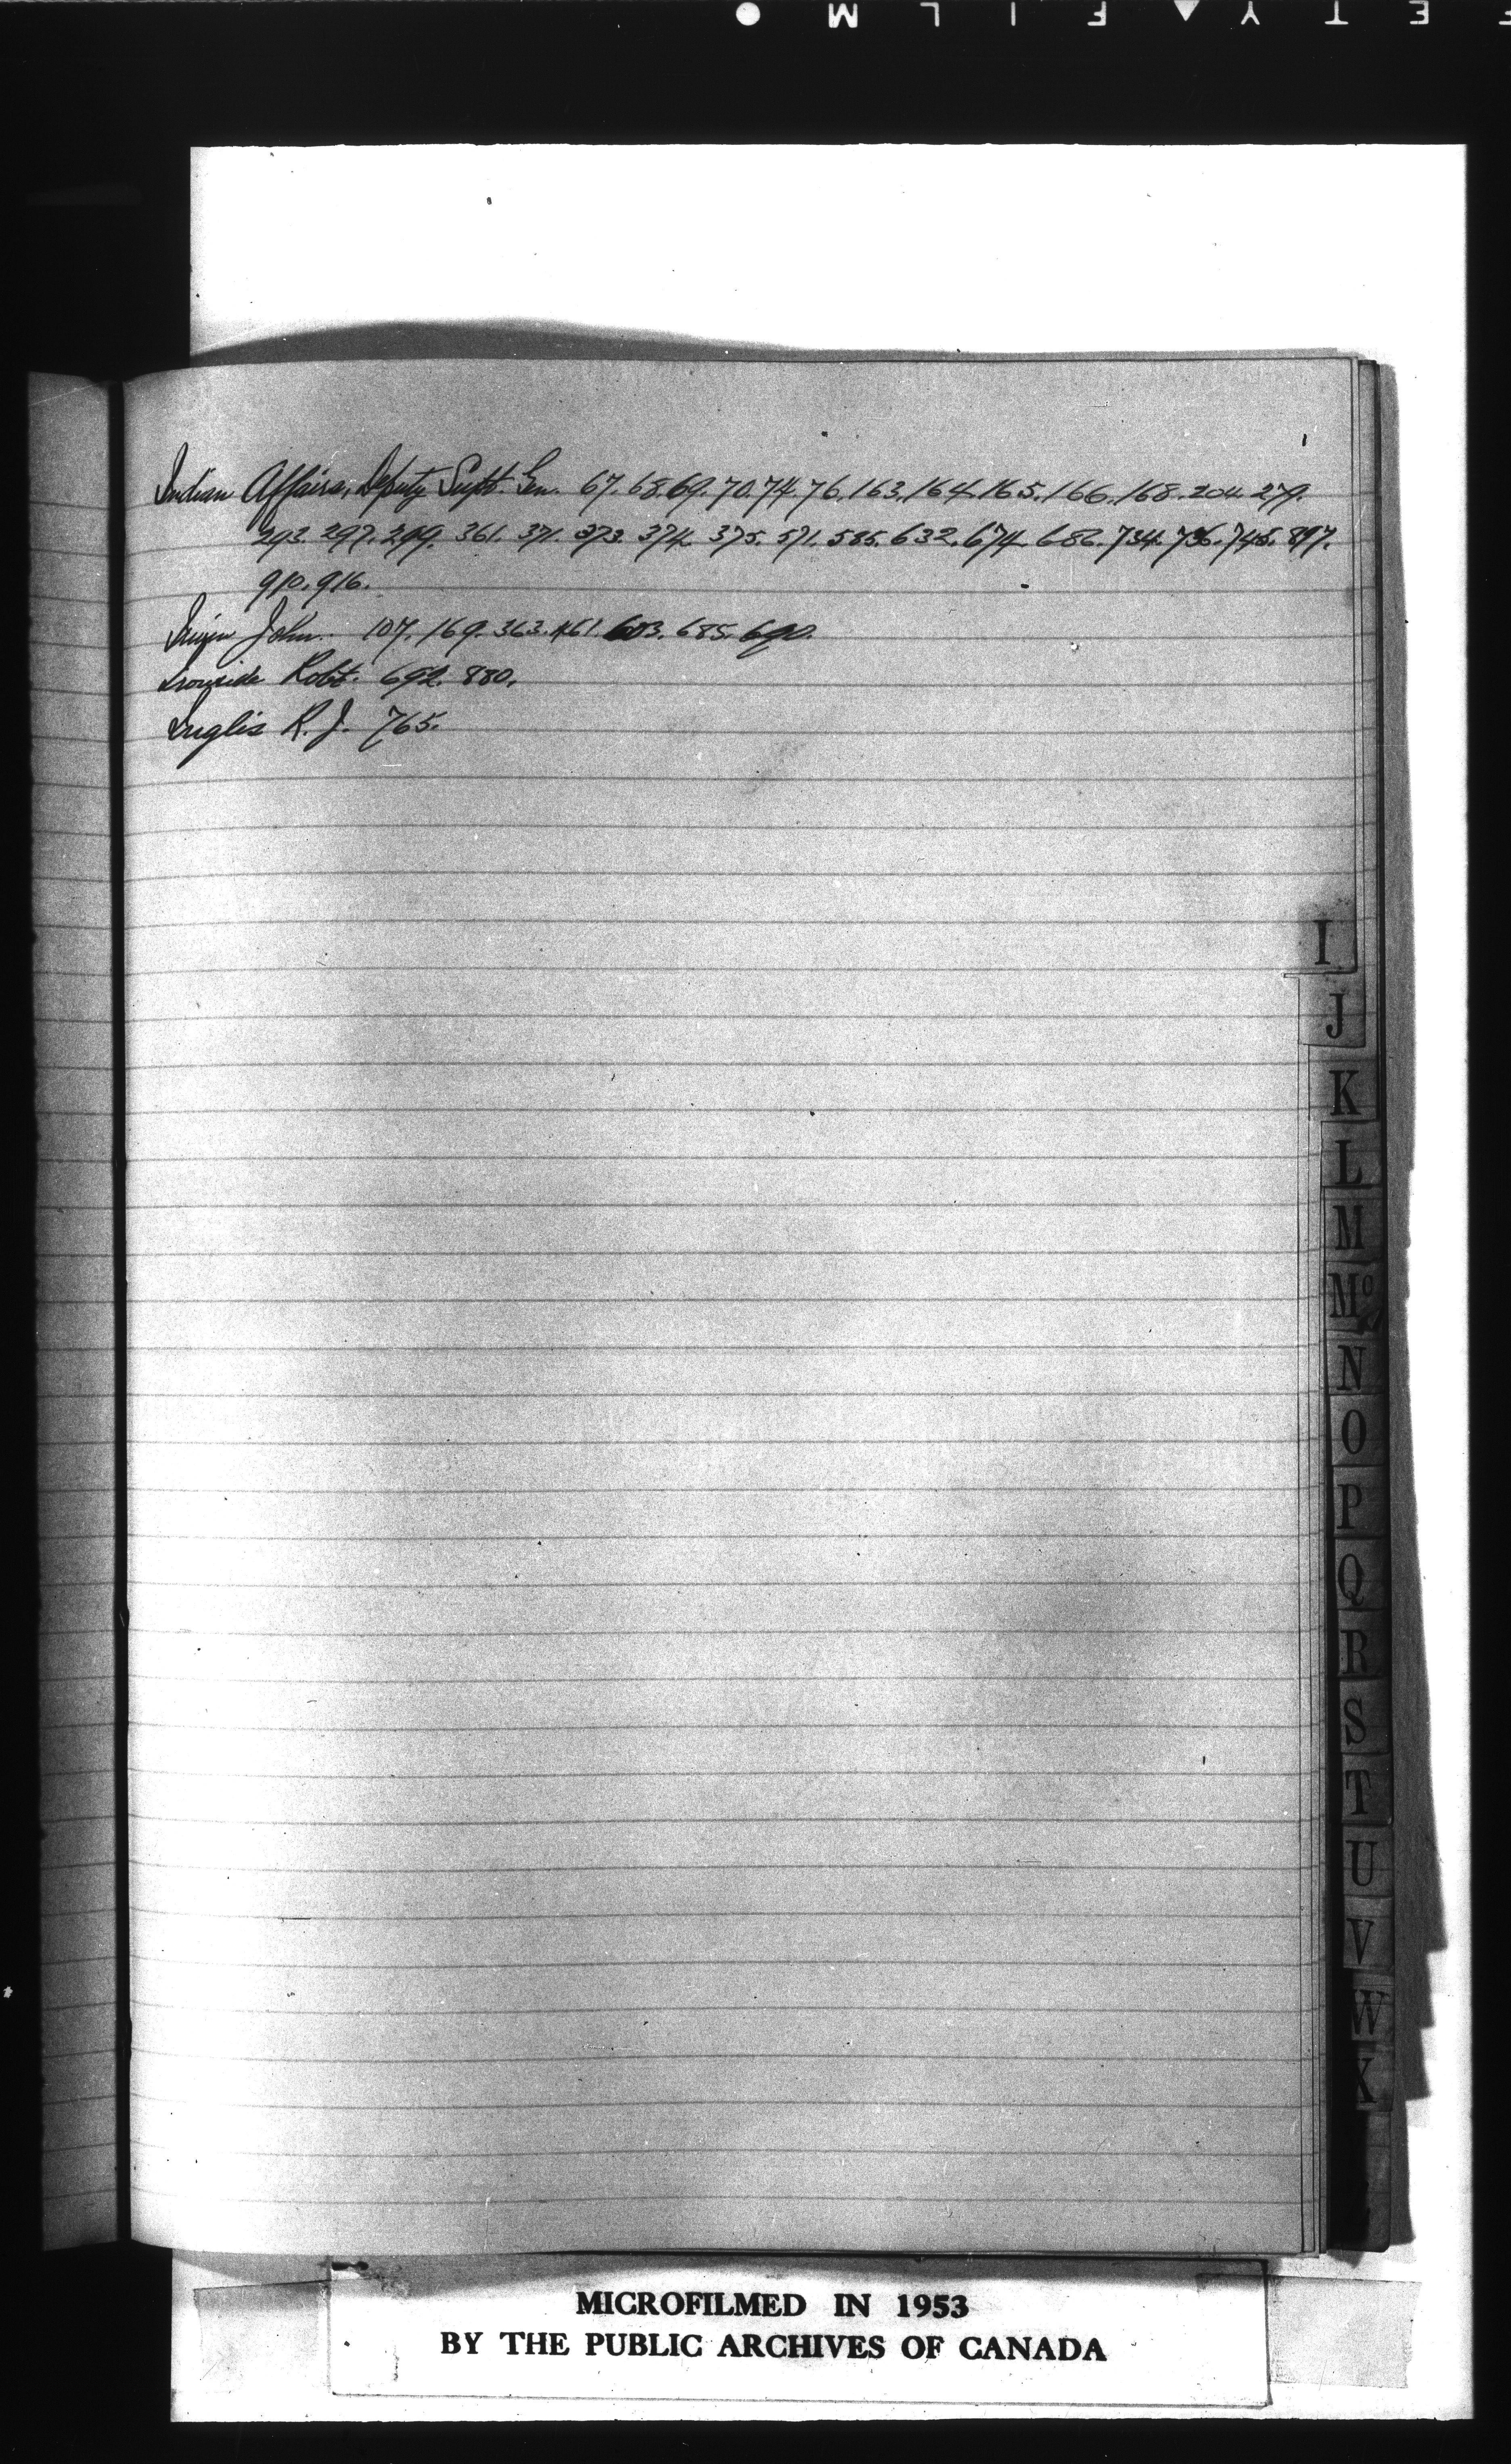 Indian Affairs, Deputy Supt. Gen. 67. 68. 69. 70. 74. 76. 163. 164. 165. 166. 168. 204. 279.
293. 297. 299. 361. 371. 373. 374. 375. 571. 585. 632. 674. 686. 734. 736. 745. 897.
910. 916.
John. 107. 169. 363. 461. 603. 685. 690.
Ironside Robt. 692. 880.
Inglis R. J. 765.
I
J
K
L
M
Mc
N
O
P
Q
R
S
T
U
V
W
X
MICROFILMED IN 1953
BY THE PUBLIC ARCHIVES OF CANADA